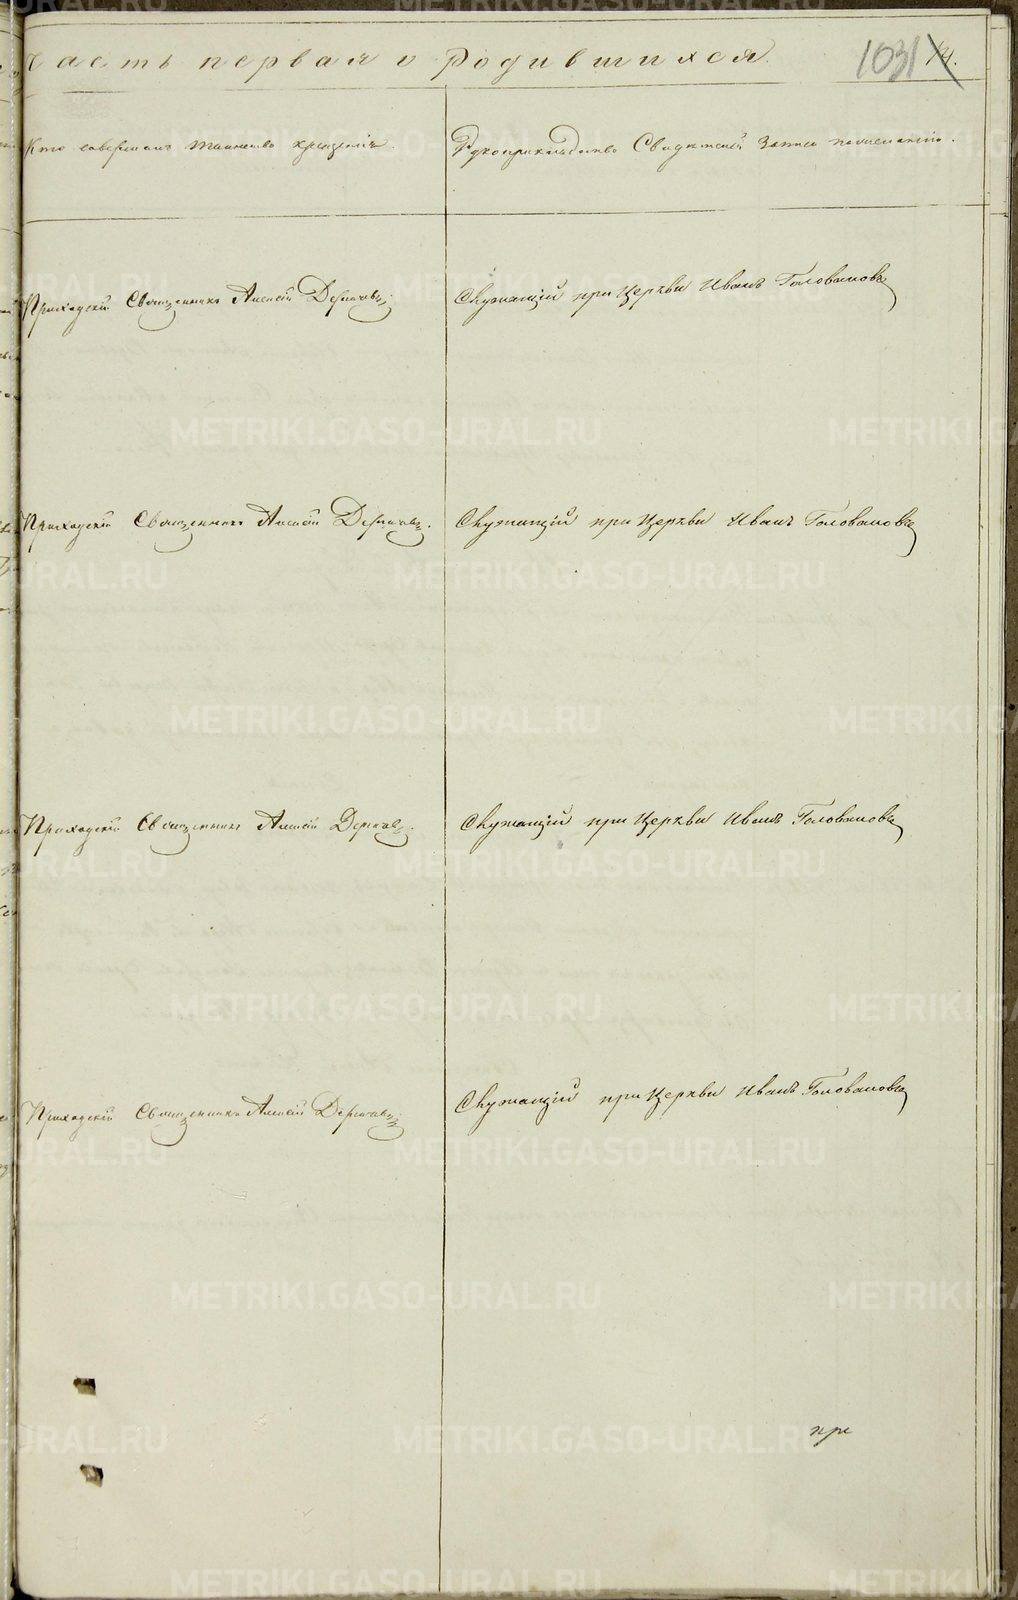 Часть первая о Родившихся.
1031
Кто совершалъ таинство крещенія.
Рукоприкладство Свидѣтелей Записи по желанію.
Приходскій Священникъ Алексѣй
Служащій при Церкви Иванъ Головановъ
Приходскій Священникъ Алексѣй
Служащій при Церкви Иванъ Головановъ
Приходскій Священникъ Алексѣй
Служащій при Церкви Иванъ Головановъ
Приходскій Священникъ Алексѣй
Служащій при Церкви Иванъ Головановъ
при
METRIKI.GASO-URAL.RU